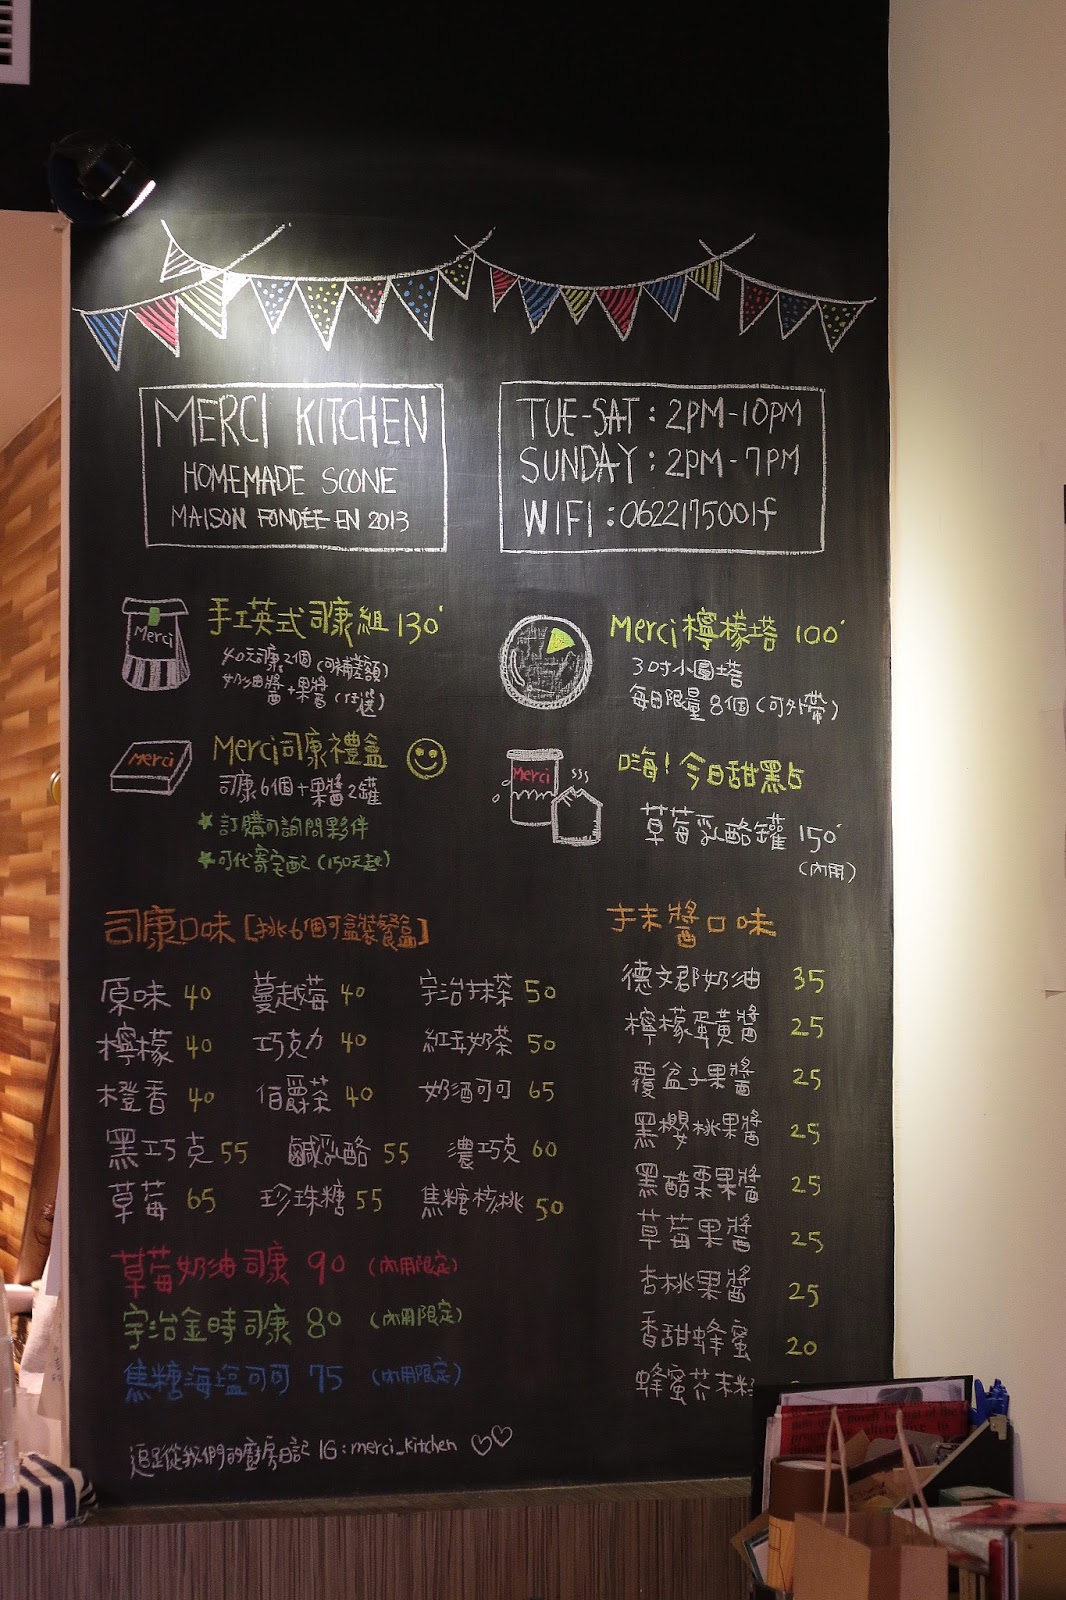 MERCI KITCHEN
HOMEMADE SCONE
MAISON FONDÉE EN 2013
TUE-SAT : 2PM-10PM
SUNDAY : 2PM-7PM
WIFI : 062217500lf
手工英式司康組 130
40元司康2個(可補差額)
奶油醬+果醬(任選)
Merci
Merci檸檬塔 100
3吋小圓塔
每日限量8個(可外帶)
Merci司康禮盒
司康6個+果醬2罐
訂購可詢問夥伴
可代寄宅配(150元起)
Merci
嗨!今日甜點
草莓乳酪罐 150
(內用)
Merci
司康口味[挑6個可盒裝餐盒]
原味 40 蔓越莓 40 宇治抹茶 50
檸檬 40 巧克力 40 紅豆奶茶 50
橙香 40 伯爵茶 40 奶酒可可 65
黑巧克 55 鹹乳酪 55 濃巧克 60
草莓 65 珍珠糖 55 焦糖核桃 50
草莓奶油司康 90 (內用限定)
宇治金時司康 80 (內用限定)
焦糖海塩可可 75 (內用限定)
追蹤從我們的廚房日記 IG : merci_kitchen
抹醬口味
德文郡奶油 35
檸檬蛋黃醬 25
覆盆子果醬 25
黑櫻桃果醬 25
黑醋栗果醬 25
草莓果醬 25
杏桃果醬 25
香甜蜂蜜 20
蜂蜜芥末籽